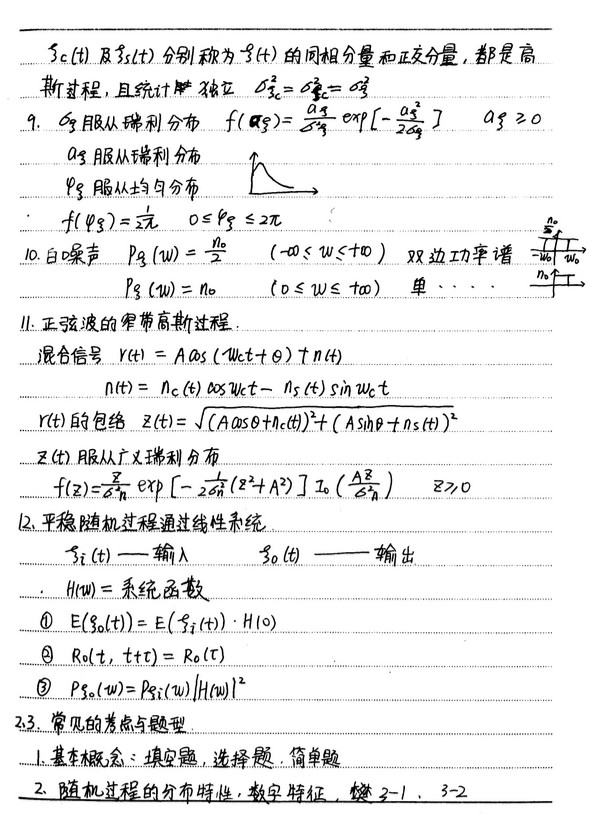 ξc(t) 及 ξs(t) 分别称为 ξ(t) 的同相分量和正交分量，都是高
斯过程，且统计独立 σ²ξc = σ²ξc = σ²ξ
9. σξ 服从瑞利分布 f(aξ) = aξ/σ²ξ exp[-aξ²/2σξ] aξ ≥ 0
aξ 服从瑞利分布
φξ 服从均匀分布
f(φξ) = 1/2π 0 ≤ φξ ≤ 2π
10. 白噪声 Pξ(w) = n₀/2 (-∞ ≤ w ≤ +∞) 双边功率谱 n₀/2 -w₀ w₀
Pξ(w) = n₀ (0 ≤ w ≤ +∞) 单 · · · · n₀
11. 正弦波的窄带高斯过程.
混合信号 r(t) = A cos (wct + θ) + n(t)
n(t) = nc(t) cos wct - ns(t) sin wct
r(t) 的包络 z(t) = √((A cosθ + nc(t))² + (A sinθ + ns(t))²)
z(t) 服从广义瑞利分布
f(z) = z/σ²n exp[-1/2σn²(z² + A²)] I₀(Az/σ²n) z ≥ 0
12. 平稳随机过程通过线性系统
ξi(t) —— 输入 ξo(t) —— 输出
H(w) = 系统函数
① E(ξo(t)) = E(ξi(t)) · H(0)
② Ro(t, t+τ) = Ro(τ)
③ Pξo(w) = Pξi(w) |H(w)|²
2.3. 常见的考点与题型
1. 基本概念：填空题，选择题，简单题
2. 随机过程的分布特性，数字特征， 3-1、 3-2